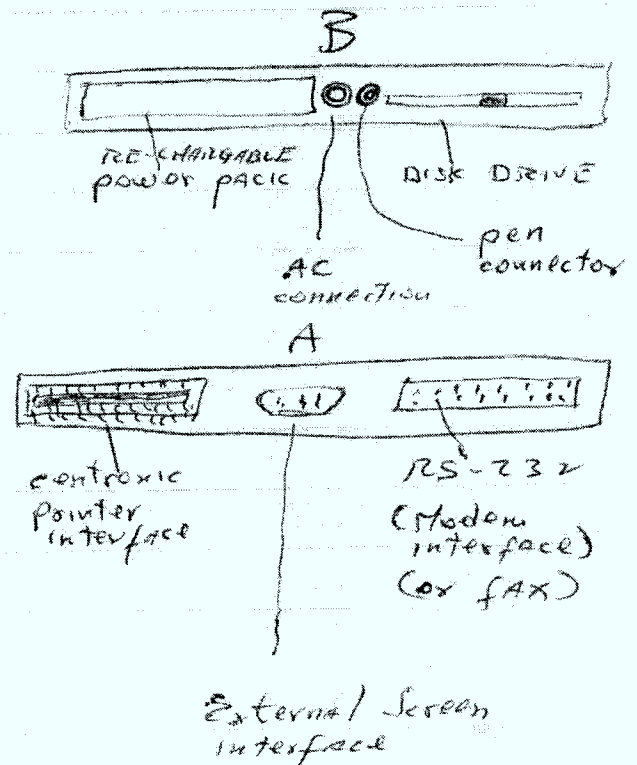 B
RE-CHARGABLE
power pack
DISK DRIVE
AC
connection
pen
connector
A
centronic
Printer
interface
RS-232
(Modem
interface)
(or FAX)
External Screen
interface